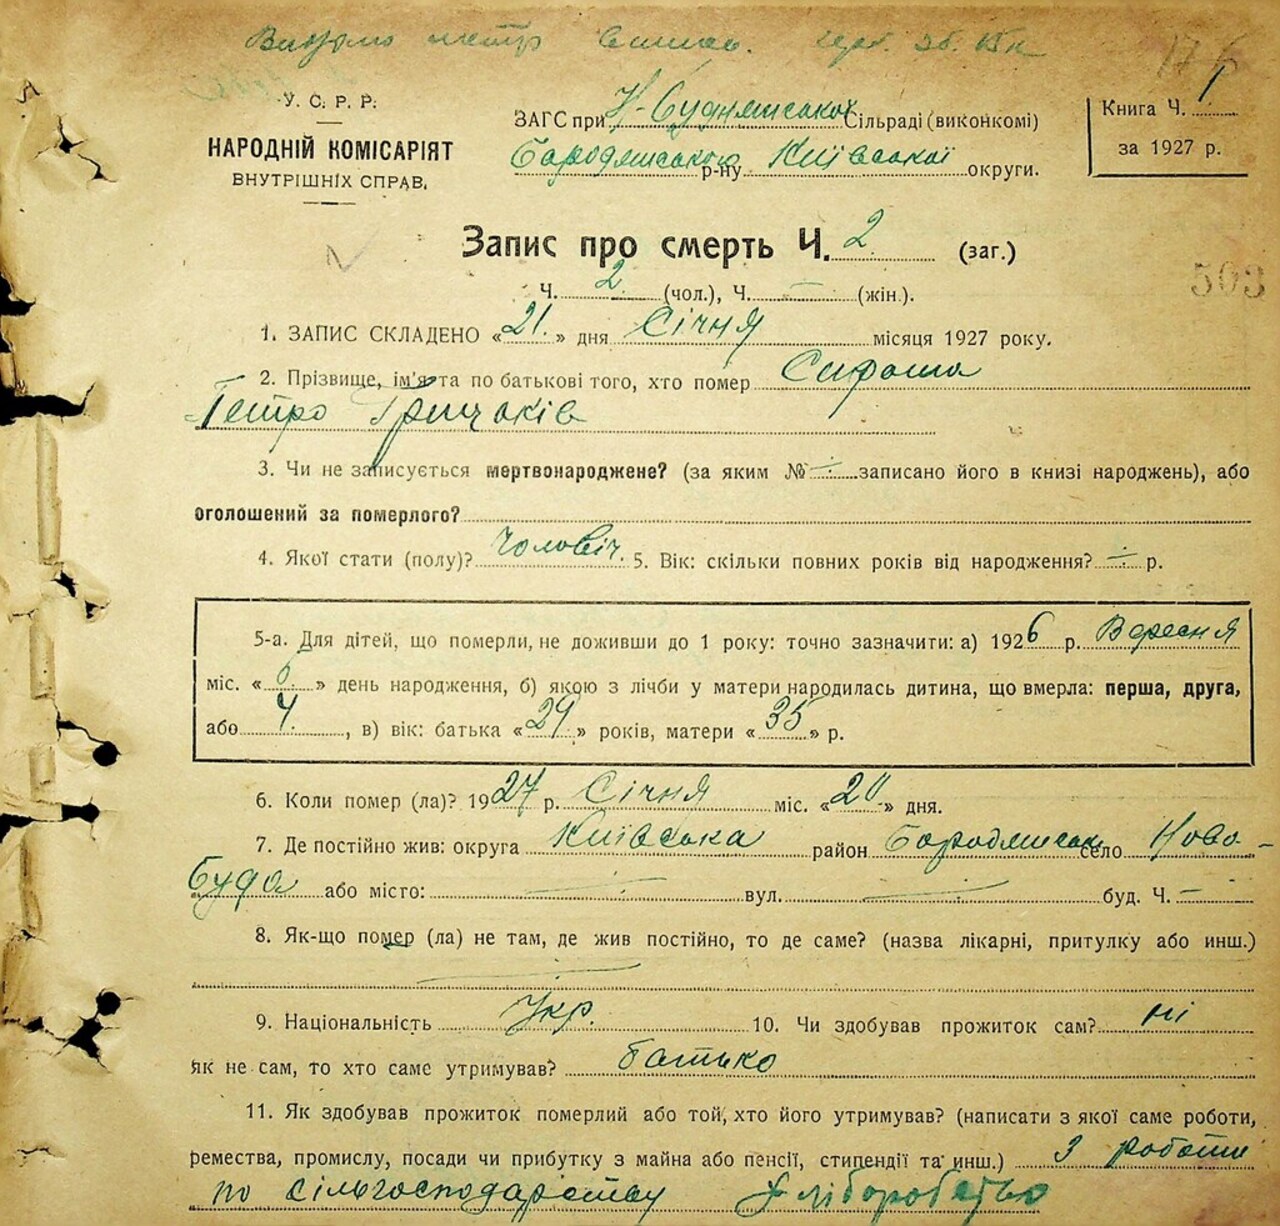 176
У. С. Р. Р.
НАРОДНІЙ КОМІСАРІЯТ
ВНУТРІШНІХ СПРАВ.
ЗАГС при Н-Буднянської Сільраді (виконкомі)
Бородянського р-ну Київської округи.
Книга Ч. 1
за 1927 р.
Запис про смерть Ч. 2 (заг.)
503
Ч. 2 (чол.), Ч. — (жін.).
1. ЗАПИС СКЛАДЕНО «21» дня Січня місяця 1927 року.
2. Прізвище, ім'я та по батькові того, хто помер
Петро
3. Чи не записується мертвонароджене? (за яким № ÷ записано його в книзі народжень), або
оголошений за померлого?
4. Якої стати (полу)? Чоловіч. 5. Вік: скільки повних років від народження? ÷ р.
5-а. Для дітей, що померли, не доживши до 1 року: точно зазначити: а) 1926 р. Вересня
міс. «6» день народження, б) якою з лічби у матери народилась дитина, що вмерла: перша, друга,
або 4., в) вік: батька «29» років, матери «35» р.
6. Коли помер (ла)? 1927 р. Січня міс. «20» дня.
7. Де постійно жив: округа Київська район Бородянськ село Ново-
Буда або місто: — вул. — буд. Ч. —
8. Як-що помер (ла) не там, де жив постійно, то де саме? (назва лікарні, притулку або инш.)
9. Національність Укр. 10. Чи здобував прожиток сам? ні
як не сам, то хто саме утримував? батько
11. Як здобував прожиток померлий або той, хто його утримував? (написати з якої саме роботи,
ремества, промислу, посади чи прибутку з майна або пенсії, стипендії та инш.) З роботи
по сільгосподарству Хліборобство